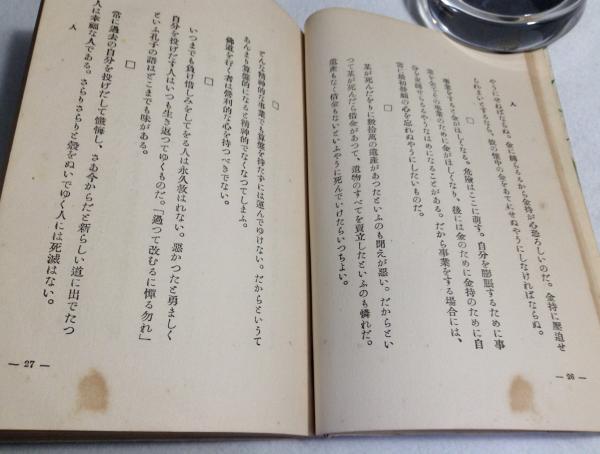 人
やうにせねばならぬ。金に縛らるるから金持が心恐ろしいのだ。金持に壓迫せ
られまいとするなら、彼の懷中の金をあてにせぬやうにしなければならぬ。
□
事業をすると金がほしくなる。危險はここに萠す。自分を膨脹するために事
業を金とその事業のために金がほしくなり、後には金のために金持のために自
分を金縛りにせらるるやうなはめになることがある。だから事業をする場合には、
常に最初發願の心を忘れぬやうにしたいものだ。
□
某が死んだをりに數拾萬の遺產があつたといふのも聞えが惡い。だからとい
つて某が死んだら借金があつて、遺物のすべてを賣立したといふのも憐れだ。
遺產もなく借金もないといふやうに死んでいけたらいつちよい。
— 26 —
□
どんな精神的な事業でも算盤を持たずには運んでゆけない。だからというて
あんまり算盤的になると精神的でなくなつてしまふ。
佛道を行く者は營利的な心を持つべきでない。
□
いつまでも負け惜しみをしてをる人は永久救はれない。惡かつたと勇ましく
自分を投げだす人はいつも生き返つてゆくものだ。「過つて改むるに憚る勿れ」
といふ孔子の語はどこまでも味がある。
□
常に過去の自分を投げだして懺悔し、さあ今からだと新らしい道に出でたつ
人は幸福な人である。さらりさらりと殼をぬいでゆく人には死滅はない。
人
— 27 —